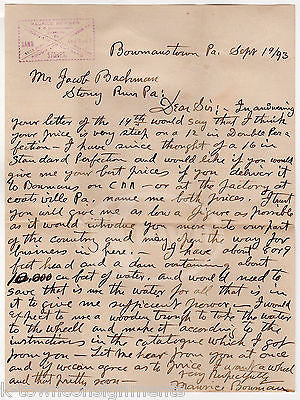 Bowmanstown Pa. Sept 19/93
Mr Jacob Bachman
Stony Run Pa:
Dear Sir:- In answering
your letter of the 14th would say that I think
your price is very steep on a 12 in Double Per
fection - I have since thought of a 16 in
Standard Perfection and would like if you would
give me your best prices if you deliver it
to Bowmans on CRR - or at the factory at
coatsville Pa, name me both prices. I trust
you will give me as low a figure as possible
as it would introduce you more into our part
of the country and may pen the way for
business in pen. I have about 8 or 9
feet head and a dam containing about
12,000 feet of water, and would need to
save that is use the water for all that is in
it to give me sufficient power - I would
expect to use a wooden trough to take the water
to the wheel and make it according to the
instructions in the catalogue which I got
from you - Let me hear from you at once
and if we can agree as to price I want a wheel
and that pretty soon -
Very Respectfully
Maurice Bowman
k-townsend